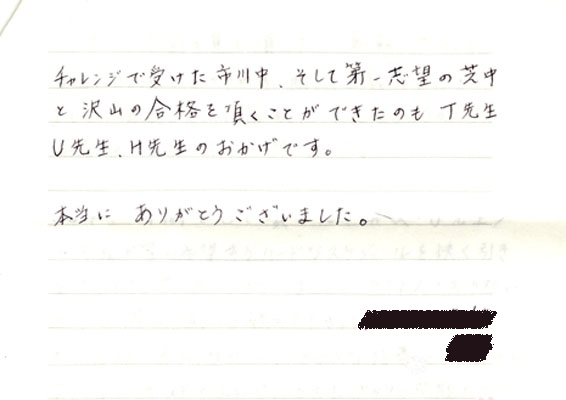 チャレンジで受けた市川中、そして第一志望の芝中
と沢山の合格を頂くことができたのも T先生
U先生、H先生のおかげです。
本当に ありがとうございました。